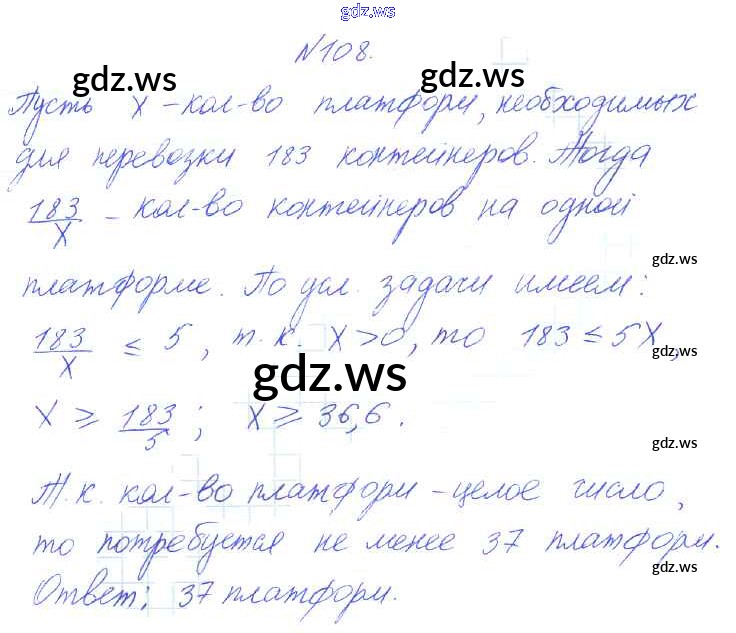 gdz.ws
№108.
gdz.ws gdz.ws
Пусть x – кол-во платформ, необходимых
для перевозки 183 контейнеров. Тогда
183/x – кол-во контейнеров на одной
gdz.ws
платформе. По усл. задачи имеем:
183/x ≤ 5, т.к. x > 0, то 183 ≤ 5x,
gdz.ws
gdz.ws
x ≥ 183/5; x ≥ 36,6.
gdz.ws
Т.к. кол-во платформ – целое число,
то потребуется не менее 37 платформ.
gdz.ws
Ответ: 37 платформ.